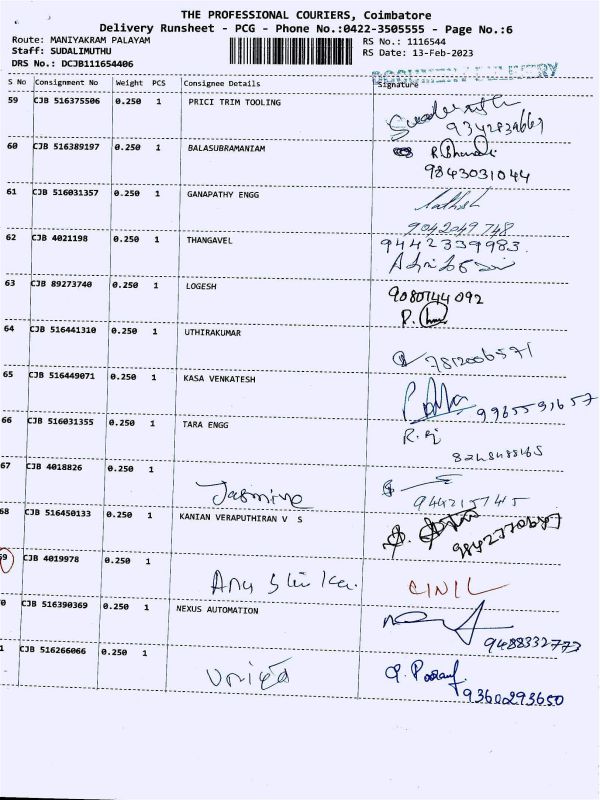 THE PROFESSIONAL COURIERS, Coimbatore
Delivery Runsheet - PCG - Phone No.:0422-3505555 - Page No.:6
Route: MANIYAKRAM PALAYAM RS No.: 1116544
Staff: SUDALIMUTHU RS Date: 13-Feb-2023
DRS No.: DCJB111654406
S No Consignment No Weight PCS Consignee Details Signature
59 CJB 516375506 0.250 1 PRICI TRIM TOOLING
60 CJB 516389197 0.250 1 BALASUBRAMANIAM
9843031044
61 CJB 516031357 0.250 1 GANAPATHY ENGG
9042049748
62 CJB 4021198 0.250 1 THANGAVEL 9442339983
63 CJB 89273740 0.250 1 LOGESH 9080744092
64 CJB 516441310 0.250 1 UTHIRAKUMAR
7812006571
65 CJB 516449071 0.250 1 KASA VENKATESH
9965591657
66 CJB 516031355 0.250 1 TARA ENGG
67 CJB 4018826 0.250 1
Jasmine 944215745
68 CJB 516450133 0.250 1 KANIAN VERAPUTHIRAN V S
69 CJB 4019978 0.250 1
CINIL
0 CJB 516390369 0.250 1 NEXUS AUTOMATION
9488332773
1 CJB 516266066 0.250 1
9360293650